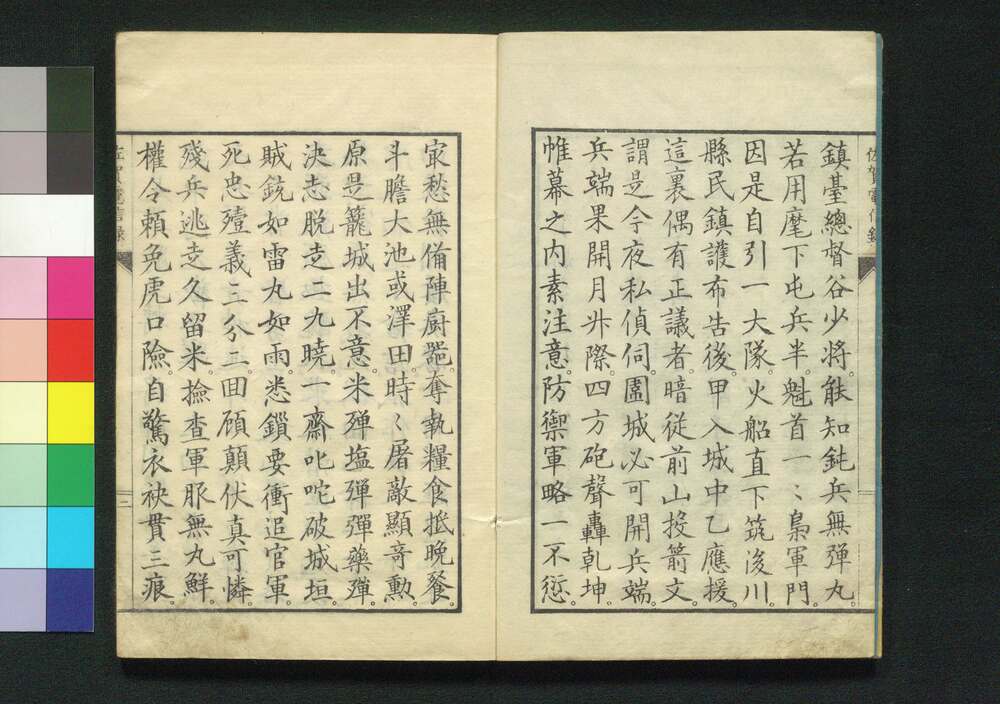 鎮臺總督谷少将。能知鈍兵無弾丸。
若用麾下屯兵半。魁首一〻梟軍門。
因是自引一大隊。火船直下筑後川
縣民鎮護布告後。甲入城中乙應援。
這裏偶有正議者。暗従前山投箭文。
謂是今夜私偵伺。圍城必可開兵端。
兵端果開月升際。四方砲聲轟乾坤。
帷幕之内素注意。防禦軍略一不愆。
最愁無備陣厨器。奪執糧食抵晩餐。
斗膽大池或澤田。時〻屠敵顯竒勲。
原是籠城出不意。米殫塩殫彈藥殫
決志脱走二九曉。一齋叱咤破城垣。
賊銃如雷丸如雨。悉鎖要衝追官軍。
死忠殪義三分二。回顧顛伏真可憐。
殘兵逃走久留米。撿查軍服無丸鮮。
權令頼免虎口險。自驚衣袂貫三痕。